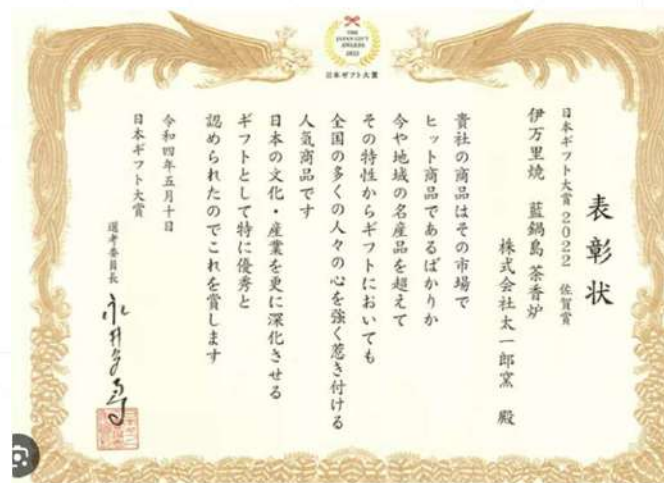 THE
JAPAN GIFT
AWARDS
2022
日本ギフト大賞
表彰状
日本ギフト大賞 2022 佐賀賞
伊万里焼 藍鍋島 茶香炉
株式会社太一郎窯 殿
貴社の商品はその市場で
ヒット商品であるばかりか
今や地域の名産品を超えて
その特性からギフトにおいても
全国の多くの人々の心を強く惹き付ける
人気商品です
日本の文化・産業を更に深化させる
ギフトとして特に優秀と
認められたのでこれを賞します
令和四年五月十日
日本ギフト大賞
選考委員長